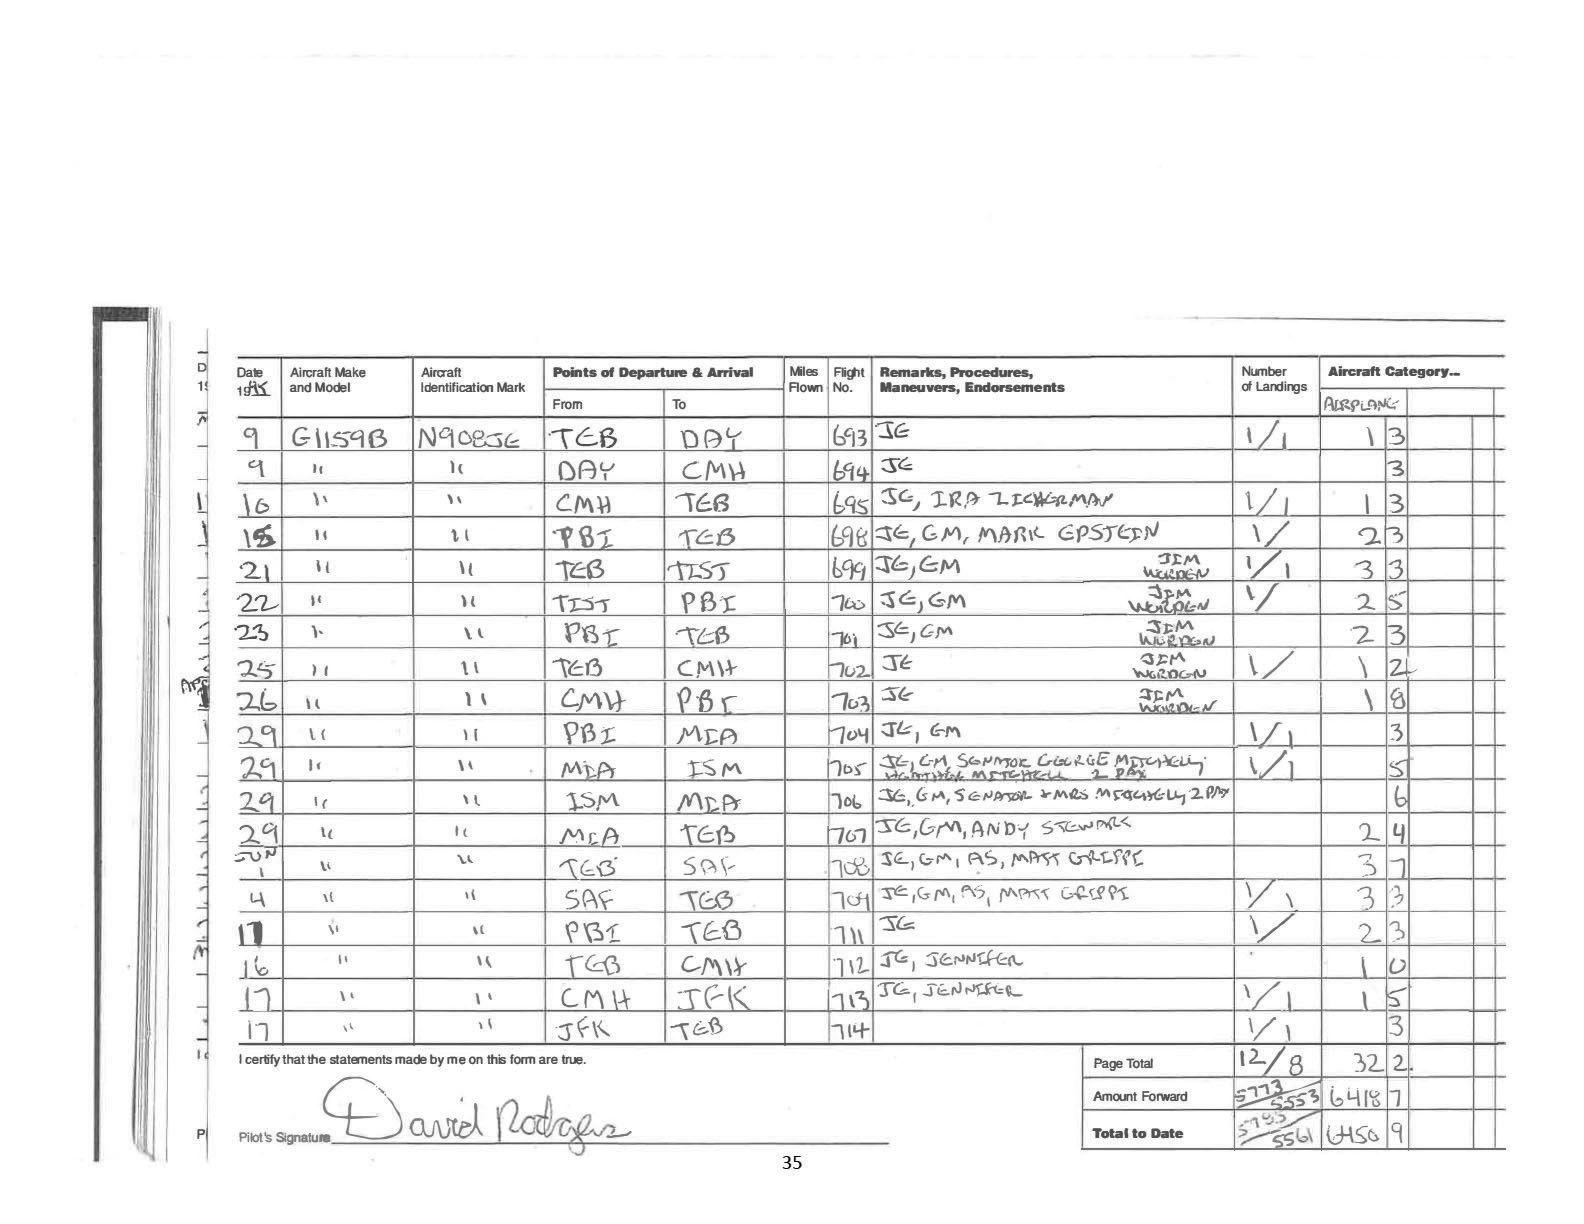 Date Aircraft Make Aircraft Points of Departure & Arrival Miles Flight Remarks, Procedures, Number Aircraft Category...
1995 and Model Identification Mark Flown No. Maneuvers, Endorsements of Landings
From To AIRPLANE
9 G1159B N908JE TEB DAY 693 JE 1/1 1 3
9 " " DAY CMH 694 JE 3
10 " " CMH TEB 695 JE, IRA ZICHERMAN 1/1 1 3
15 " " PBI TEB 698 JE, GM, MARK EPSTEIN 1/ 2 3
21 " " TEB TIST 699 JE, GM JIM WORDEN 1/1 3 3
22 " " TIST PBI 700 JE, GM JIM WORDEN 1/ 2 5
23 " " PBI TEB 701 JE, GM JIM WORDEN 2 3
25 " " TEB CMH 702 JE JIM WORDEN 1/ 1 2
26 " " CMH PBI 703 JE JIM WORDEN 1 8
29 " " PBI MIA 704 JE, GM 1/1 3
29 " " MIA ISM 705 JE, GM, SENATOR GEORGE MITCHELL, 1/1 5
HEATHER MITCHELL 2 PAX
29 " " ISM MIA 706 JE, GM, SENATOR + MRS MITCHELL, 2 PAX 6
29 " " MIA TEB 707 JE, GM, ANDY STEWART 2 4
JUN
1 " " TEB SAF 708 JE, GM, AS, MATT GRIPPI 3 7
4 " " SAF TEB 709 JE, GM, AS, MATT GRIPPI 1/1 3 3
11 " " PBI TEB 711 JE 1/ 2 3
16 " " TEB CMH 712 JE, JENNIFER 1 0
17 " " CMH JFK 713 JE, JENNIFER 1/1 1 5
17 " " JFK TEB 714 1/1 3
I certify that the statements made by me on this form are true. Page Total 12/8 32 2
Amount Forward 5773/5553 6418 7
Pilot's Signature David Rodgers Total to Date 5785/5561 6450 9
35